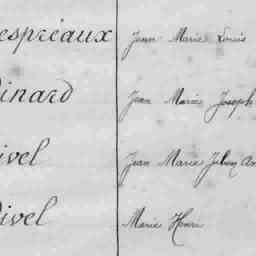 espréaux Jean Marie Louis
inard Jean Marie Joseph
ivel Jean Marie
ivel Marie Henri